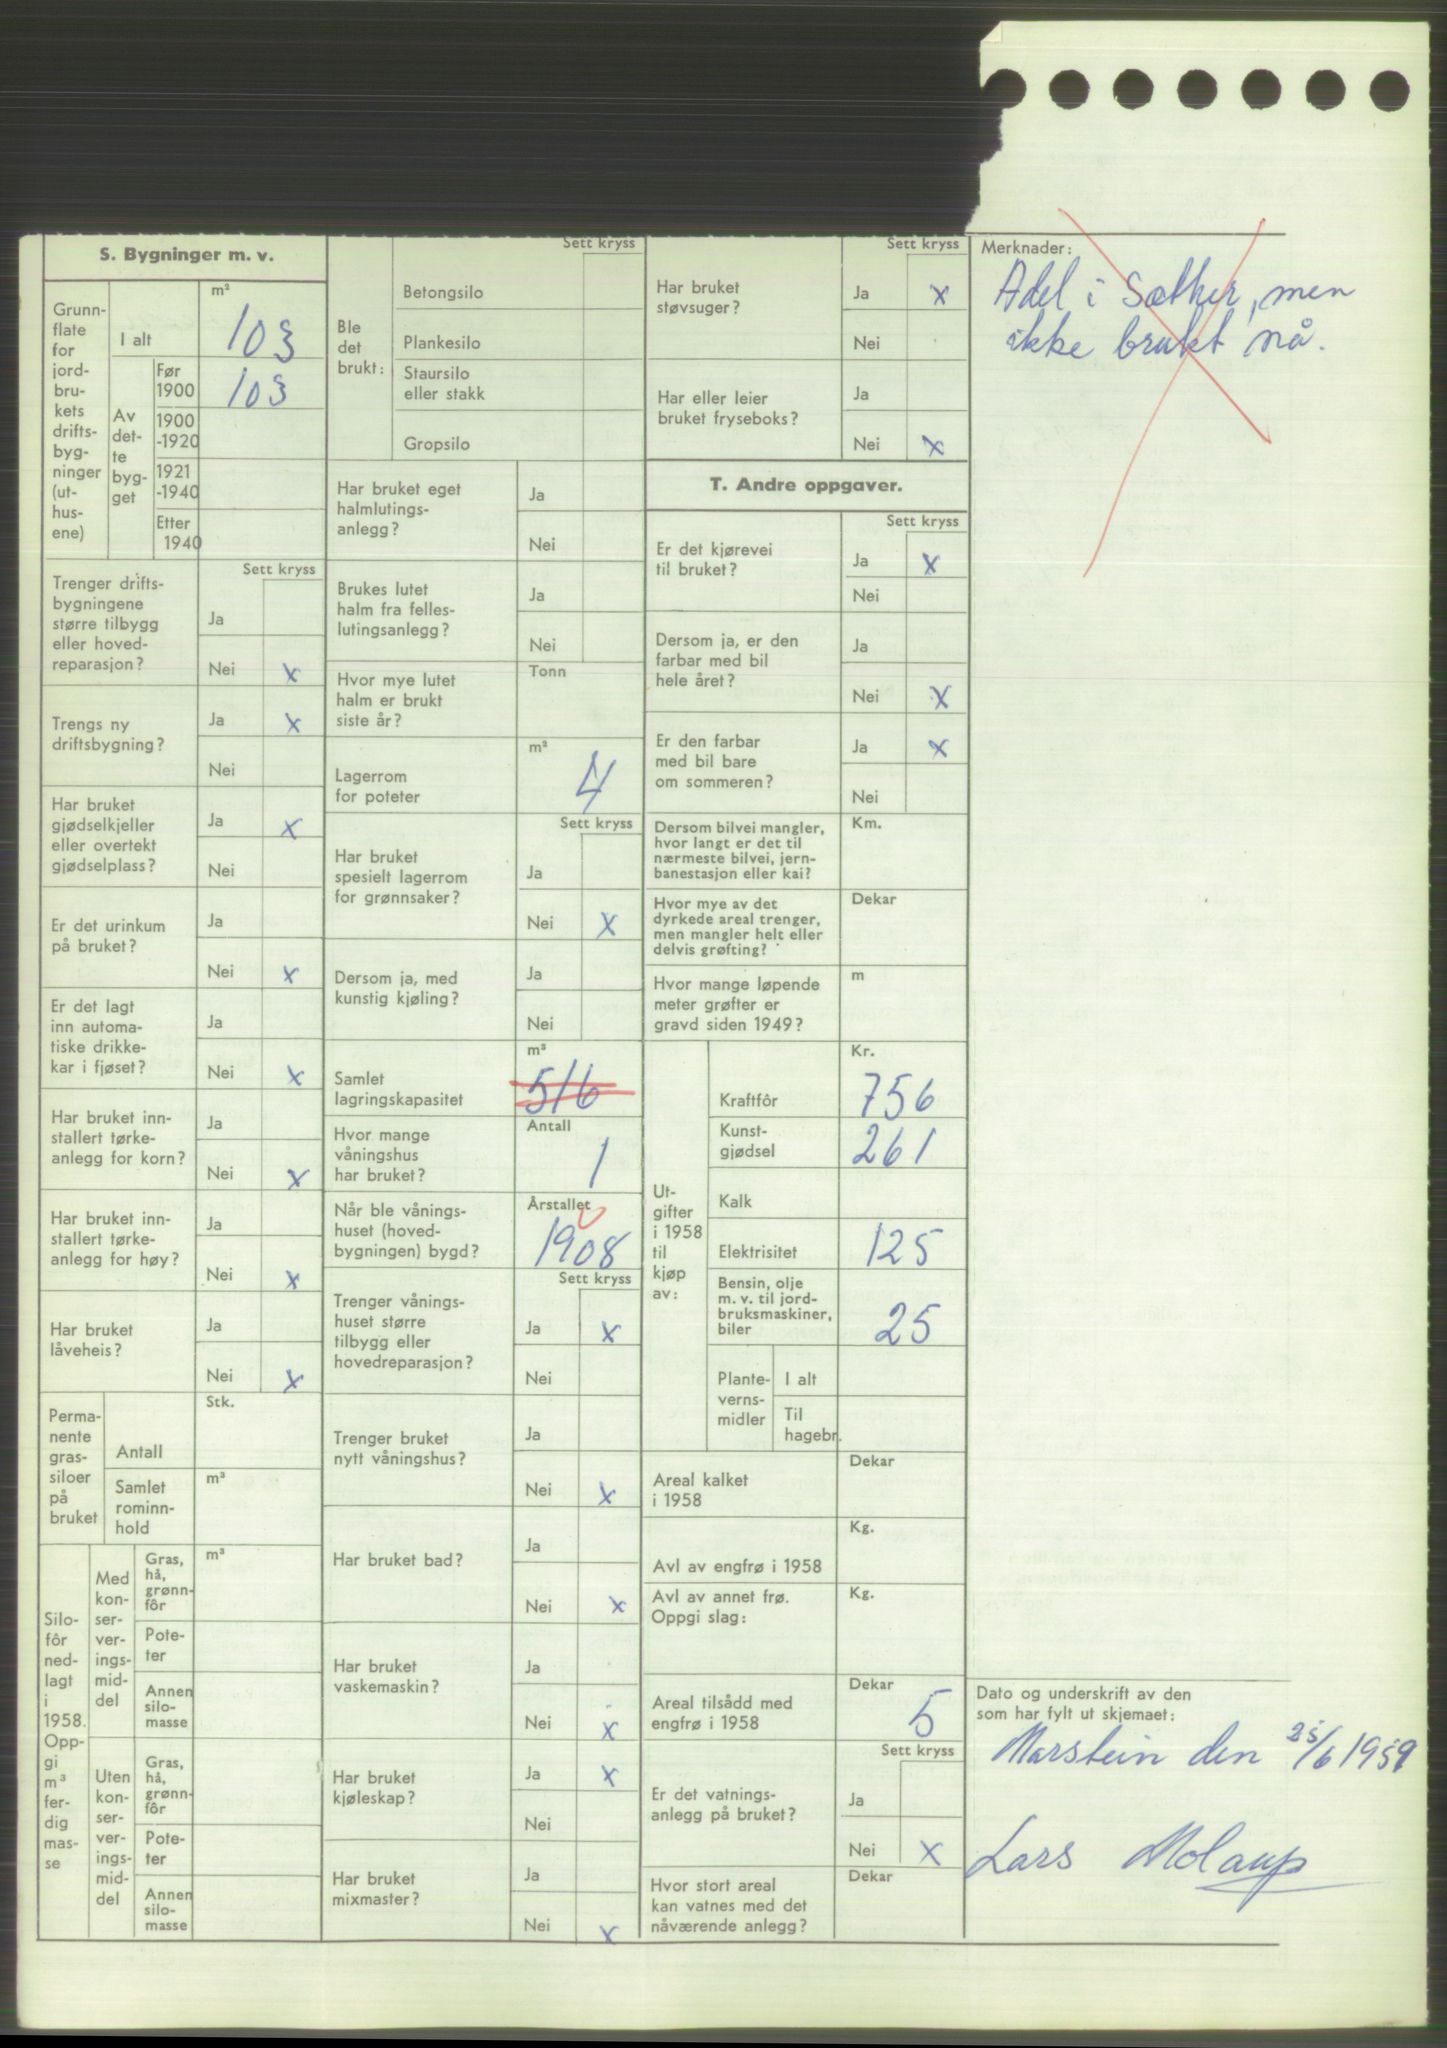 S. Bygninger m. v.
Grunn-
flate
for
jord-
bru-
kets
drifts-
byg-
ninger
(ut-
hus-
ene)
m²
I alt 103
Av
det-
te
byg-
get
Før
1900 103
1900
-1920
1921
-1940
Etter
1940
Sett kryss
Trenger drifts-
bygningene
større tilbygg
eller hoved-
reparasjon?
Ja
Nei x
Trengs ny
driftsbygning?
Ja x
Nei
Har bruket
gjødselkjeller
eller overtekt
gjødselplass?
Ja x
Nei
Er det urinkum
på bruket?
Ja
Nei x
Er det lagt
inn automa-
tiske drikke-
kar i fjøset?
Ja
Nei x
Har bruket inn-
stallert tørke-
anlegg for korn?
Ja
Nei x
Har bruket inn-
stallert tørke-
anlegg for høy?
Ja
Nei x
Har bruket
låveheis?
Ja
Nei x
Perma-
nente
gras-
siloer
på
bruket
Stk.
Antall
m³
Samlet
rominn-
hold
Silo-
fôr
ned-
lagt
i
1958.
Opp-
gi
m³
fer-
dig
mas-
se
Med
kon-
ser-
ver-
ings-
mid-
del
m³
Gras,
hå,
grønn-
fôr
Pote-
ter
Annen
silo-
masse
Uten
kon-
ser-
ver-
ings-
mid-
del
Gras,
hå,
grønn-
fôr
Pote-
ter
Annen
silo-
masse
Sett kryss
Ble
det
brukt:
Betongsilo
Plankesilo
Staursilo
eller stakk
Gropsilo
Har bruket eget
halmlutings-
anlegg?
Ja
Nei
Brukes lutet
halm fra felles-
lutingsanlegg?
Ja
Nei
Hvor mye lutet
halm er brukt
siste år?
Tonn
Lagerrom
for poteter
m³
4
Sett kryss
Har bruket
spesielt lagerrom
for grønnsaker?
Ja
Nei x
Dersom ja, med
kunstig kjøling?
Ja
Nei
Samlet
lagringskapasitet
m³
516
Hvor mange
våningshus
har bruket?
Antall
1
Når ble vånings-
huset (hoved-
bygningen) bygd?
Årstallet
1908
Sett kryss
Trenger vånings-
huset større
tilbygg eller
hovedreparasjon?
Ja x
Nei
Trenger bruket
nytt våningshus?
Ja
Nei x
Har bruket bad?
Ja
Nei x
Har bruket
vaskemaskin?
Ja
Nei x
Har bruket
kjøleskap?
Ja x
Nei
Har bruket
mixmaster?
Ja
Nei x
Sett kryss
Har bruket
støvsuger?
Ja x
Nei
Har eller leier
bruket fryseboks?
Ja
Nei x
T. Andre oppgaver.
Sett kryss
Er det kjørevei
til bruket?
Ja x
Nei
Dersom ja, er den
farbar med bil
hele året?
Ja
Nei x
Er den farbar
med bil bare
om sommeren?
Ja x
Nei
Dersom bilvei mangler,
hvor langt er det til
nærmeste bilvei, jern-
banestasjon eller kai?
Km.
Hvor mye av det
dyrkede areal trenger,
men mangler helt eller
delvis grøfting?
Dekar
Hvor mange løpende
meter grøfter er
gravd siden 1949?
m
Ut-
gifter
i 1958
til
kjøp
av:
Kr.
Kraftfôr 756
Kunst-
gjødsel 261
Kalk
Elektrisitet 125
Bensin, olje
m. v. til jord-
bruksmaskiner,
biler 25
Plante-
verns-
midler
I alt
Til
hagebr.
Areal kalket
i 1958
Dekar
Avl av engfrø i 1958
Kg.
Avl av annet frø.
Oppgi slag:
Kg.
Areal tilsådd med
engfrø i 1958
Dekar
5
Sett kryss
Er det vatnings-
anlegg på bruket?
Ja
Nei x
Hvor stort areal
kan vatnes med det
nåværende anlegg?
Dekar
Merknader:
Adel i Sæther, men
ikke brukt nå.
Dato og underskrift av den
som har fylt ut skjemaet:
Marstein den 25/6 1959
Lars